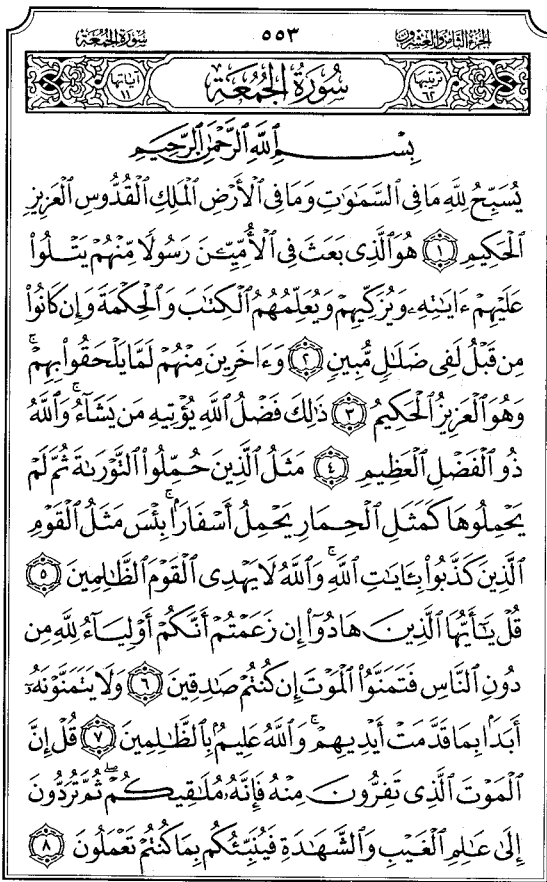 سُورَةُ الجُمُعَةِ ٥٥٣ الجزء الثامن والعشرون
آياتها ١١ سُورَةُ الجُمُعَةِ ترتيبها ٦٢
بِسْمِ ٱللَّهِ ٱلرَّحْمَٰنِ ٱلرَّحِيمِ
يُسَبِّحُ لِلَّهِ مَا فِي ٱلسَّمَٰوَٰتِ وَمَا فِي ٱلْأَرْضِ ٱلْمَلِكِ ٱلْقُدُّوسِ ٱلْعَزِيزِ
ٱلْحَكِيمِ ١ هُوَ ٱلَّذِي بَعَثَ فِي ٱلْأُمِّيِّـۧنَ رَسُولًا مِّنْهُمْ يَتْلُوا۟
عَلَيْهِمْ ءَايَٰتِهِۦ وَيُزَكِّيهِمْ وَيُعَلِّمُهُمُ ٱلْكِتَٰبَ وَٱلْحِكْمَةَ وَإِن كَانُوا۟
مِن قَبْلُ لَفِي ضَلَٰلٍ مُّبِينٍ ٢ وَءَاخَرِينَ مِنْهُمْ لَمَّا يَلْحَقُوا۟ بِهِمْ ۚ
وَهُوَ ٱلْعَزِيزُ ٱلْحَكِيمُ ٣ ذَٰلِكَ فَضْلُ ٱللَّهِ يُؤْتِيهِ مَن يَشَآءُ ۚ وَٱللَّهُ
ذُو ٱلْفَضْلِ ٱلْعَظِيمِ ٤ مَثَلُ ٱلَّذِينَ حُمِّلُوا۟ ٱلتَّوْرَىٰةَ ثُمَّ لَمْ
يَحْمِلُوهَا كَمَثَلِ ٱلْحِمَارِ يَحْمِلُ أَسْفَارًۢا ۚ بِئْسَ مَثَلُ ٱلْقَوْمِ
ٱلَّذِينَ كَذَّبُوا۟ بِـَٔايَٰتِ ٱللَّهِ ۚ وَٱللَّهُ لَا يَهْدِي ٱلْقَوْمَ ٱلظَّٰلِمِينَ ٥
قُلْ يَٰٓأَيُّهَا ٱلَّذِينَ هَادُوٓا۟ إِن زَعَمْتُمْ أَنَّكُمْ أَوْلِيَآءُ لِلَّهِ مِن
دُونِ ٱلنَّاسِ فَتَمَنَّوُا۟ ٱلْمَوْتَ إِن كُنتُمْ صَٰدِقِينَ ٦ وَلَا يَتَمَنَّوْنَهُۥٓ
أَبَدًۢا بِمَا قَدَّمَتْ أَيْدِيهِمْ ۚ وَٱللَّهُ عَلِيمٌۢ بِٱلظَّٰلِمِينَ ٧ قُلْ إِنَّ
ٱلْمَوْتَ ٱلَّذِي تَفِرُّونَ مِنْهُ فَإِنَّهُۥ مُلَٰقِيكُمْ ۖ ثُمَّ تُرَدُّونَ
إِلَىٰ عَٰلِمِ ٱلْغَيْبِ وَٱلشَّهَٰدَةِ فَيُنَبِّئُكُم بِمَا كُنتُمْ تَعْمَلُونَ ٨